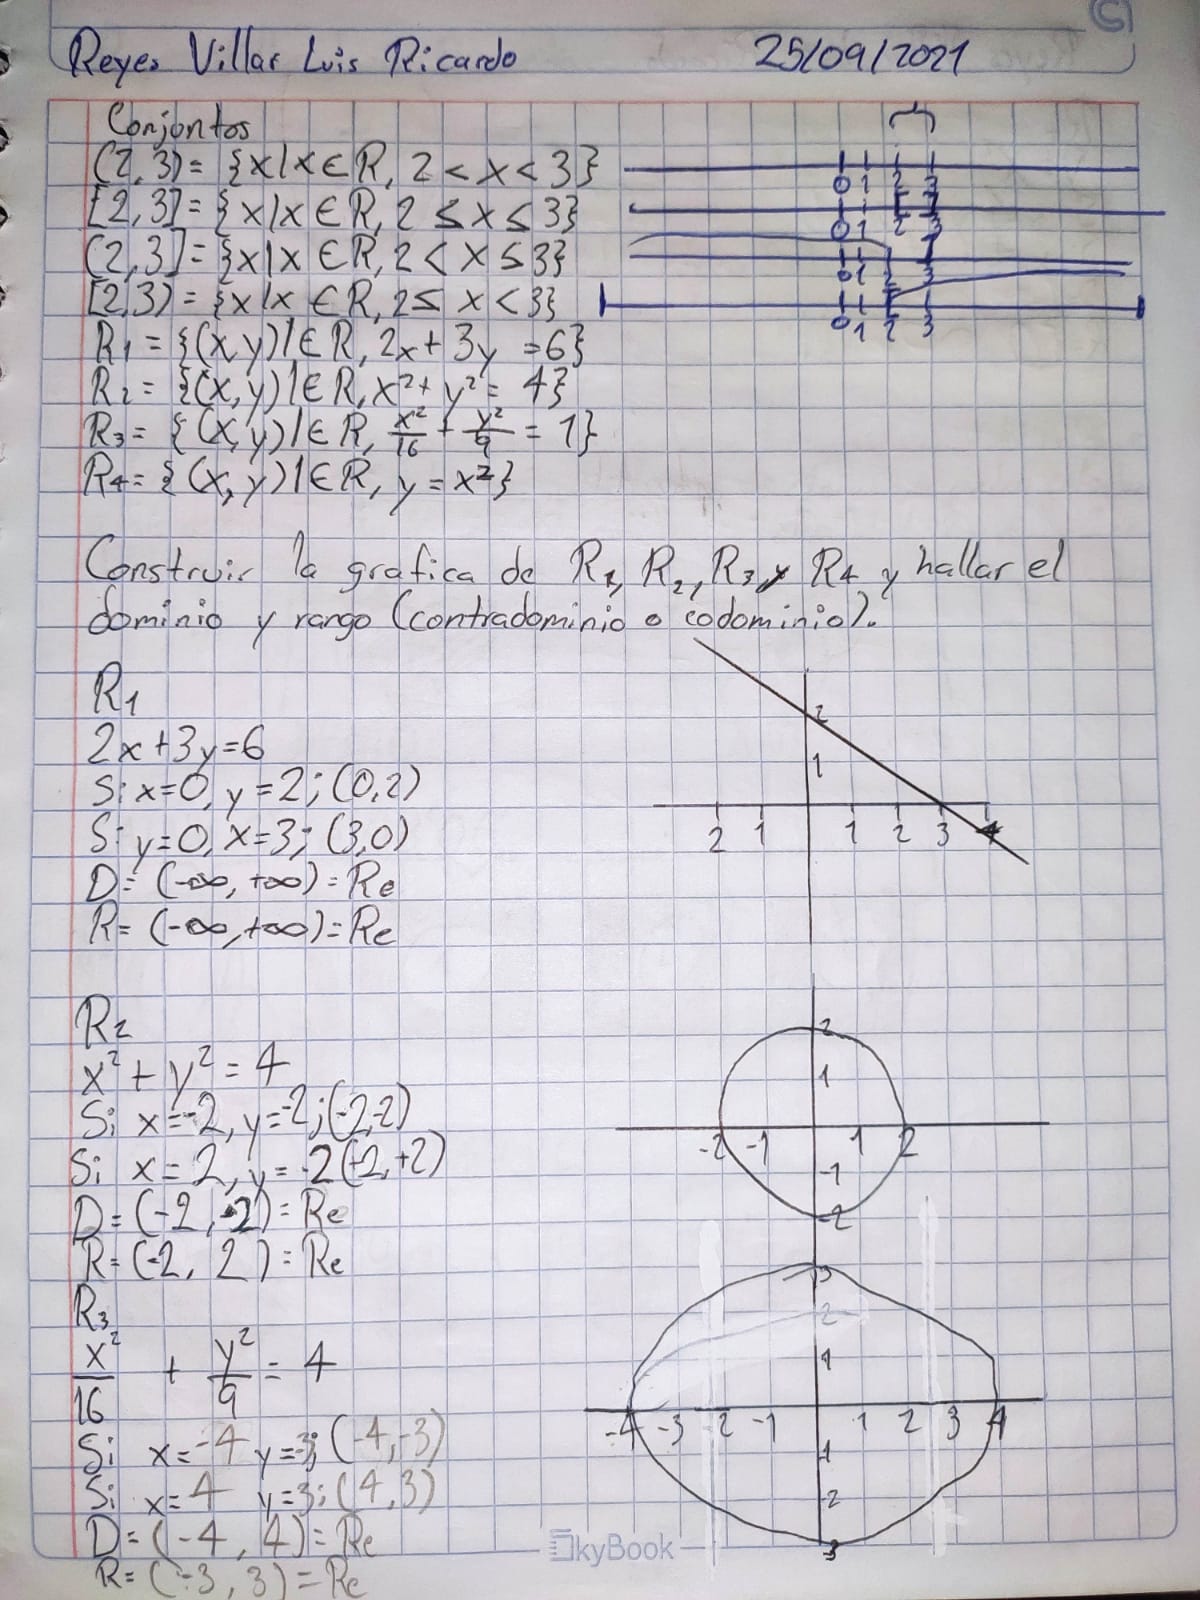 Reyes Villar Luis Ricardo 25/09/2021
Conjontos
(2,3)= {x|x∈R, 2<x<3}
[2,3]= {x|x∈R, 2≤x≤3}
(2,3]= {x|x∈R, 2<x≤3}
[2,3)= {x|x∈R, 2≤x<3}
0 1 2 3
0 1 2 3
0 1 2 3
0 1 2 3
R1 = {(x,y)|∈R, 2x+3y=6}
R2 = {(x,y)|∈R, x²+y²=4}
R3 = {(x,y)|∈R, x²/16 + y²/9 = 1}
R4 = {(x,y)|∈R, y=x²}
Construir la grafica de R1, R2, R3 y R4 y hallar el
dominio y rango (contradominio o codominio).
R1
2x+3y=6
Si x=0, y=2; (0,2)
Si y=0, x=3; (3,0)
D= (-∞, +∞)= Re
R= (-∞, +∞)= Re
2
1
2 1 1 2 3 4
R2
x²+y²=4
Si x=-2, y=-2; (-2,-2)
Si x=2, y=-2 (+2,+2)
D= (-2, -2)= Re
R= (-2, 2)= Re
2
1
-2 -1 1 2
-1
-2
R3
x²/16 + y²/9 = 4
Si x=-4 y=-3; (-4,-3)
Si x=4 y=3; (4,3)
D= (-4, 4)= Re
R= (-3, 3)= Re
3
2
1
-4 -3 -2 -1 1 2 3 4
1
-2
3
SkyBook